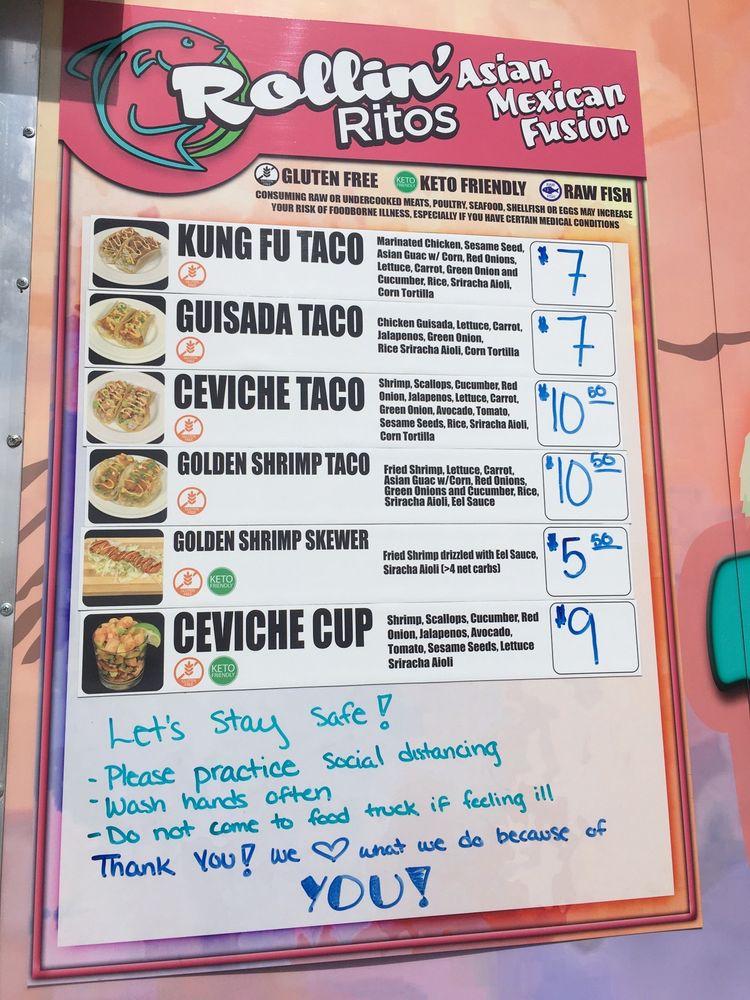 Rollin' Asian
Ritos Mexican
Fusion
GLUTEN FREE KETO FRIENDLY KETO FRIENDLY RAW FISH
CONSUMING RAW OR UNDERCOOKED MEATS, POULTRY, SEAFOOD, SHELLFISH OR EGGS MAY INCREASE
YOUR RISK OF FOODBORNE ILLNESS, ESPECIALLY IF YOU HAVE CERTAIN MEDICAL CONDITIONS
KUNG FU TACO
Marinated Chicken, Sesame Seed,
Asian Guac w/ Corn, Red Onions,
Lettuce, Carrot, Green Onion and
Cucumber, Rice, Sriracha Aioli,
Corn Tortilla
$7
GUISADA TACO
Chicken Guisada, Lettuce, Carrot,
Jalapenos, Green Onion,
Rice Sriracha Aioli, Corn Tortilla
$7
CEVICHE TACO
Shrimp, Scallops, Cucumber, Red
Onion, Jalapenos, Lettuce, Carrot,
Green Onion, Avocado, Tomato,
Sesame Seeds, Rice, Sriracha Aioli,
Corn Tortilla
$10 50
GOLDEN SHRIMP TACO
Fried Shrimp, Lettuce, Carrot,
Asian Guac w/Corn, Red Onions,
Green Onions and Cucumber, Rice,
Sriracha Aioli, Eel Sauce
$10 50
GOLDEN SHRIMP SKEWER
KETO
FRIENDLY
Fried Shrimp drizzled with Eel Sauce,
Siracha Aioli (>4 net carbs)
$5 50
CEVICHE CUP
KETO
FRIENDLY
Shrimp, Scallops, Cucumber, Red
Onion, Jalapenos, Avocado,
Tomato, Sesame Seeds, Lettuce
Sriracha Aioli
$9
Let's Stay Safe!
- Please practice social distancing
- Wash hands often
- Do not come to food truck if feeling ill
Thank You! we ♡ what we do because of
YOU!